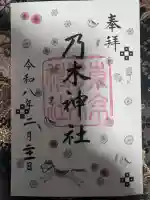 奉拝
乃木神社
令和八年二月二十二日